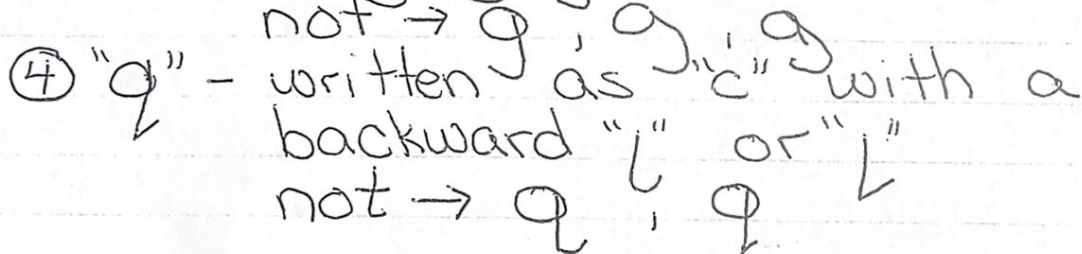 not → g, g, g
④ "q" - written as "c" with a
backward "j" or "j"
not → q, q